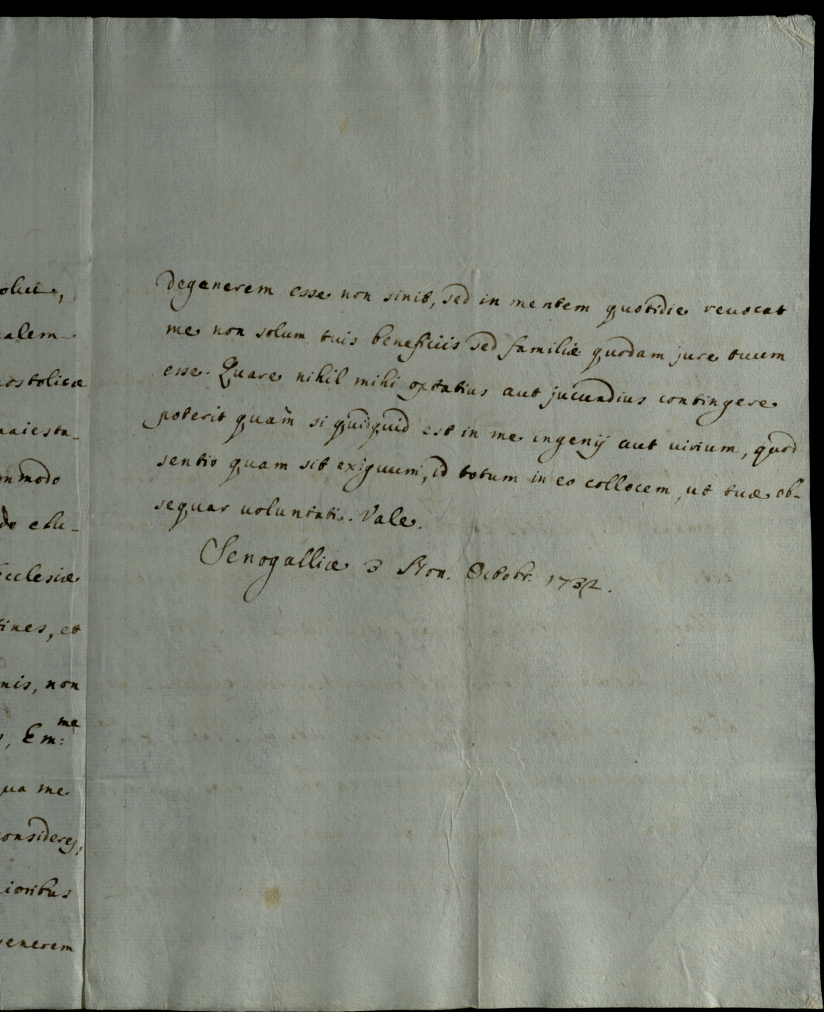 olui,
alem
postolicæ
maiesta-
mmodo
do elu-
Ecclesiæ
tines, et
nis, non
, Em:me
qua me
consideres,
ioribus
generem
Degenerem esse non sinit, sed in mentem quotidie reuocat
me non solum tuis beneficiis sed familiæ quodam jure tuum
esse. Quare nihil mihi optatius aut jucundius contingere
poterit quàm si quidquid est in me ingenij aut uirium, quod
sentio quam sit exiguum, id totum in eo collocem, ut tuæ ob-
sequar uoluntati. Vale.
Senogalliæ 3 Non. Octobr. 1732.